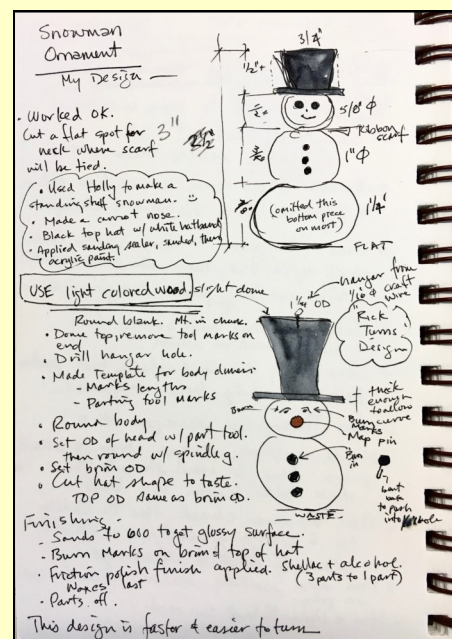 Snowman
Ornament
My Design —
• Worked OK.
Cut a flat spot for
neck where scarf
will be tied.
3"
• Used Holly to make a
standing shelf snowman.
• Made a carrot nose.
• Black top hat w/ white hatband
• Applied sanding sealer, sanded, then
acrylic paint.
3/4"
1/2"+
5/8" Φ
Ribbon
scarf
1" Φ
(omitted this
bottom piece
on most)
1 1/4"
FLAT
USE light colored wood.
slight dome
1 1/4" OD
hanger from
1/16 Φ craft
wire
"Rick
Turns"
Design
Round blank. Mt. in chuck.
• Dome top, remove tool marks on
end
• Drill hangar hole.
• Made Template for body dimens
- Marks lengths
- Parting tool marks
• Round body
• Set OD of head w/ part tool.
then round w/ spindle g.
• Set brim OD
• Cut hat shape to taste.
TOP OD same as brim OD.
thick
enough
to allow
curve
Burn
Burn
Marks
Map pin
Burn
in
WASTE
bent
to push
into hole
Finishing -
- Sands to 600 to get glossy surface.
- Burn Marks on brim & top of hat
- Friction polish finish applied. shellac + alcohol.
(3 parts to 1 part)
Waxes last
- Parts off.
This design is faster & easier to turn